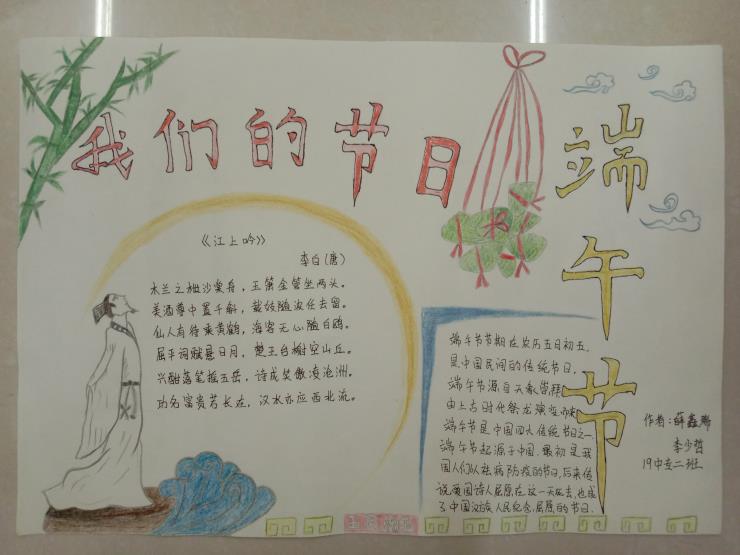 我们的节日
端午节
《江上吟》
李白(唐)
木兰之枻沙棠舟，玉箫金管坐两头。
美酒尊中置千斛，载妓随波任去留。
仙人有待乘黄鹤，海客无心随白鸥。
屈平词赋悬日月，楚王台榭空山丘。
兴酣落笔摇五岳，诗成笑傲凌沧洲。
功名富贵若长在，汉水亦应西北流。
端午节节期在农历五月初五，
是中国民间的传统节日，
端午节源自天象崇拜
由上古时代祭龙演变而来
端午节是中国四大传统节日之一
端午节起源于中国，最初是我
国人们以祛病防疫的节日，后来传
说爱国诗人屈原在这一天死去，也成
了中国汉族人民纪念屈原的节日.
作者：薛鑫
李少哲
19中专二班